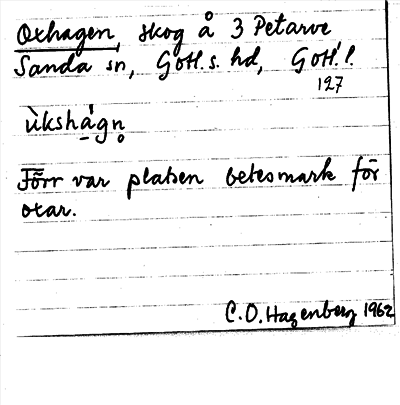 Oxhagen, skog å 3 Petarve
Sanda sn, Gotl. s. hd, Gotl. l.
127
ùkshágn̥
Förr var platsen betesmark för
oxar.
C. O. Hagenberg 1962